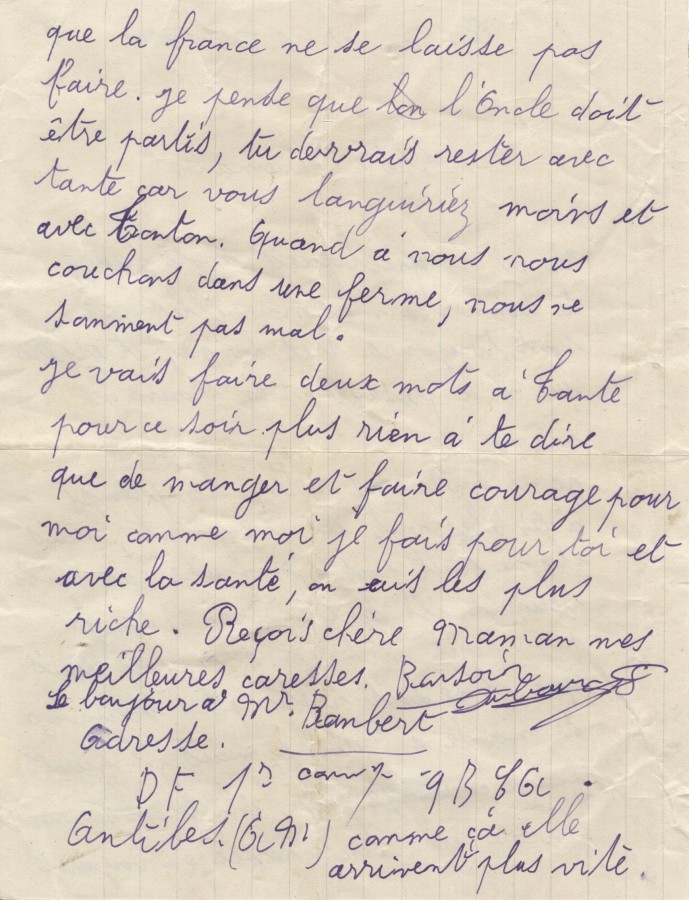 que la france ne se laisse pas
faire. Je pense que ton l'Oncle doit
être partis, tu devrais rester avec
tante car vous languiriez moins et
avec Tonton. Quand à nous nous
couchons dans une ferme, nous ne
sanment pas mal.
Je vais faire deux mots à Tante
pour ce soir plus rien à te dire
que de manger et faire courage pour
moi comme moi je fais pour toi et
avec la santé, on est les plus
riche. Reçois chère Maman mes
meilleures caresses. Bonsoir
Le bonjour à Mr. Rambert
Adresse.
DF 1r 9 B
Antibes. (AM) comme çà elle
arrivent plus vite.